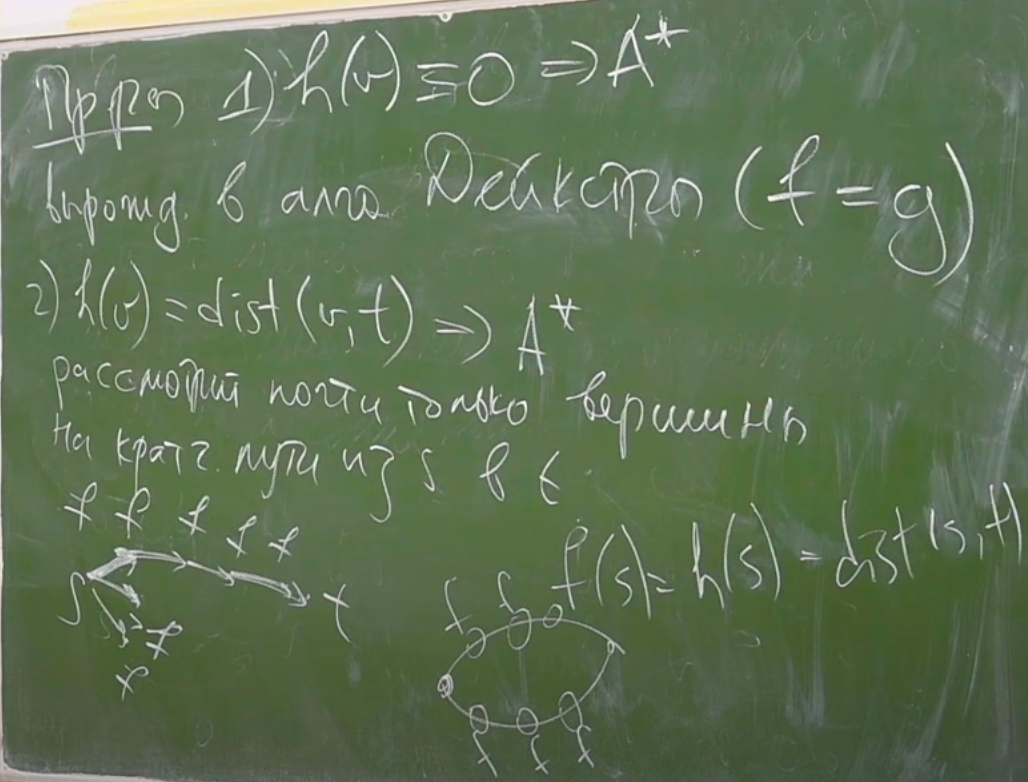 Пр-ры 1) h(v) ≡ 0 => A*
вырожд. в алг. Дейкстры (f = g)
2) h(v) = dist(v, t) => A*
рассмотрит почти только вершины
на кратч. пути из s в t
f f f f f
s t
f(s) = h(s) = dist(s, t)
f f
f
f
f f f